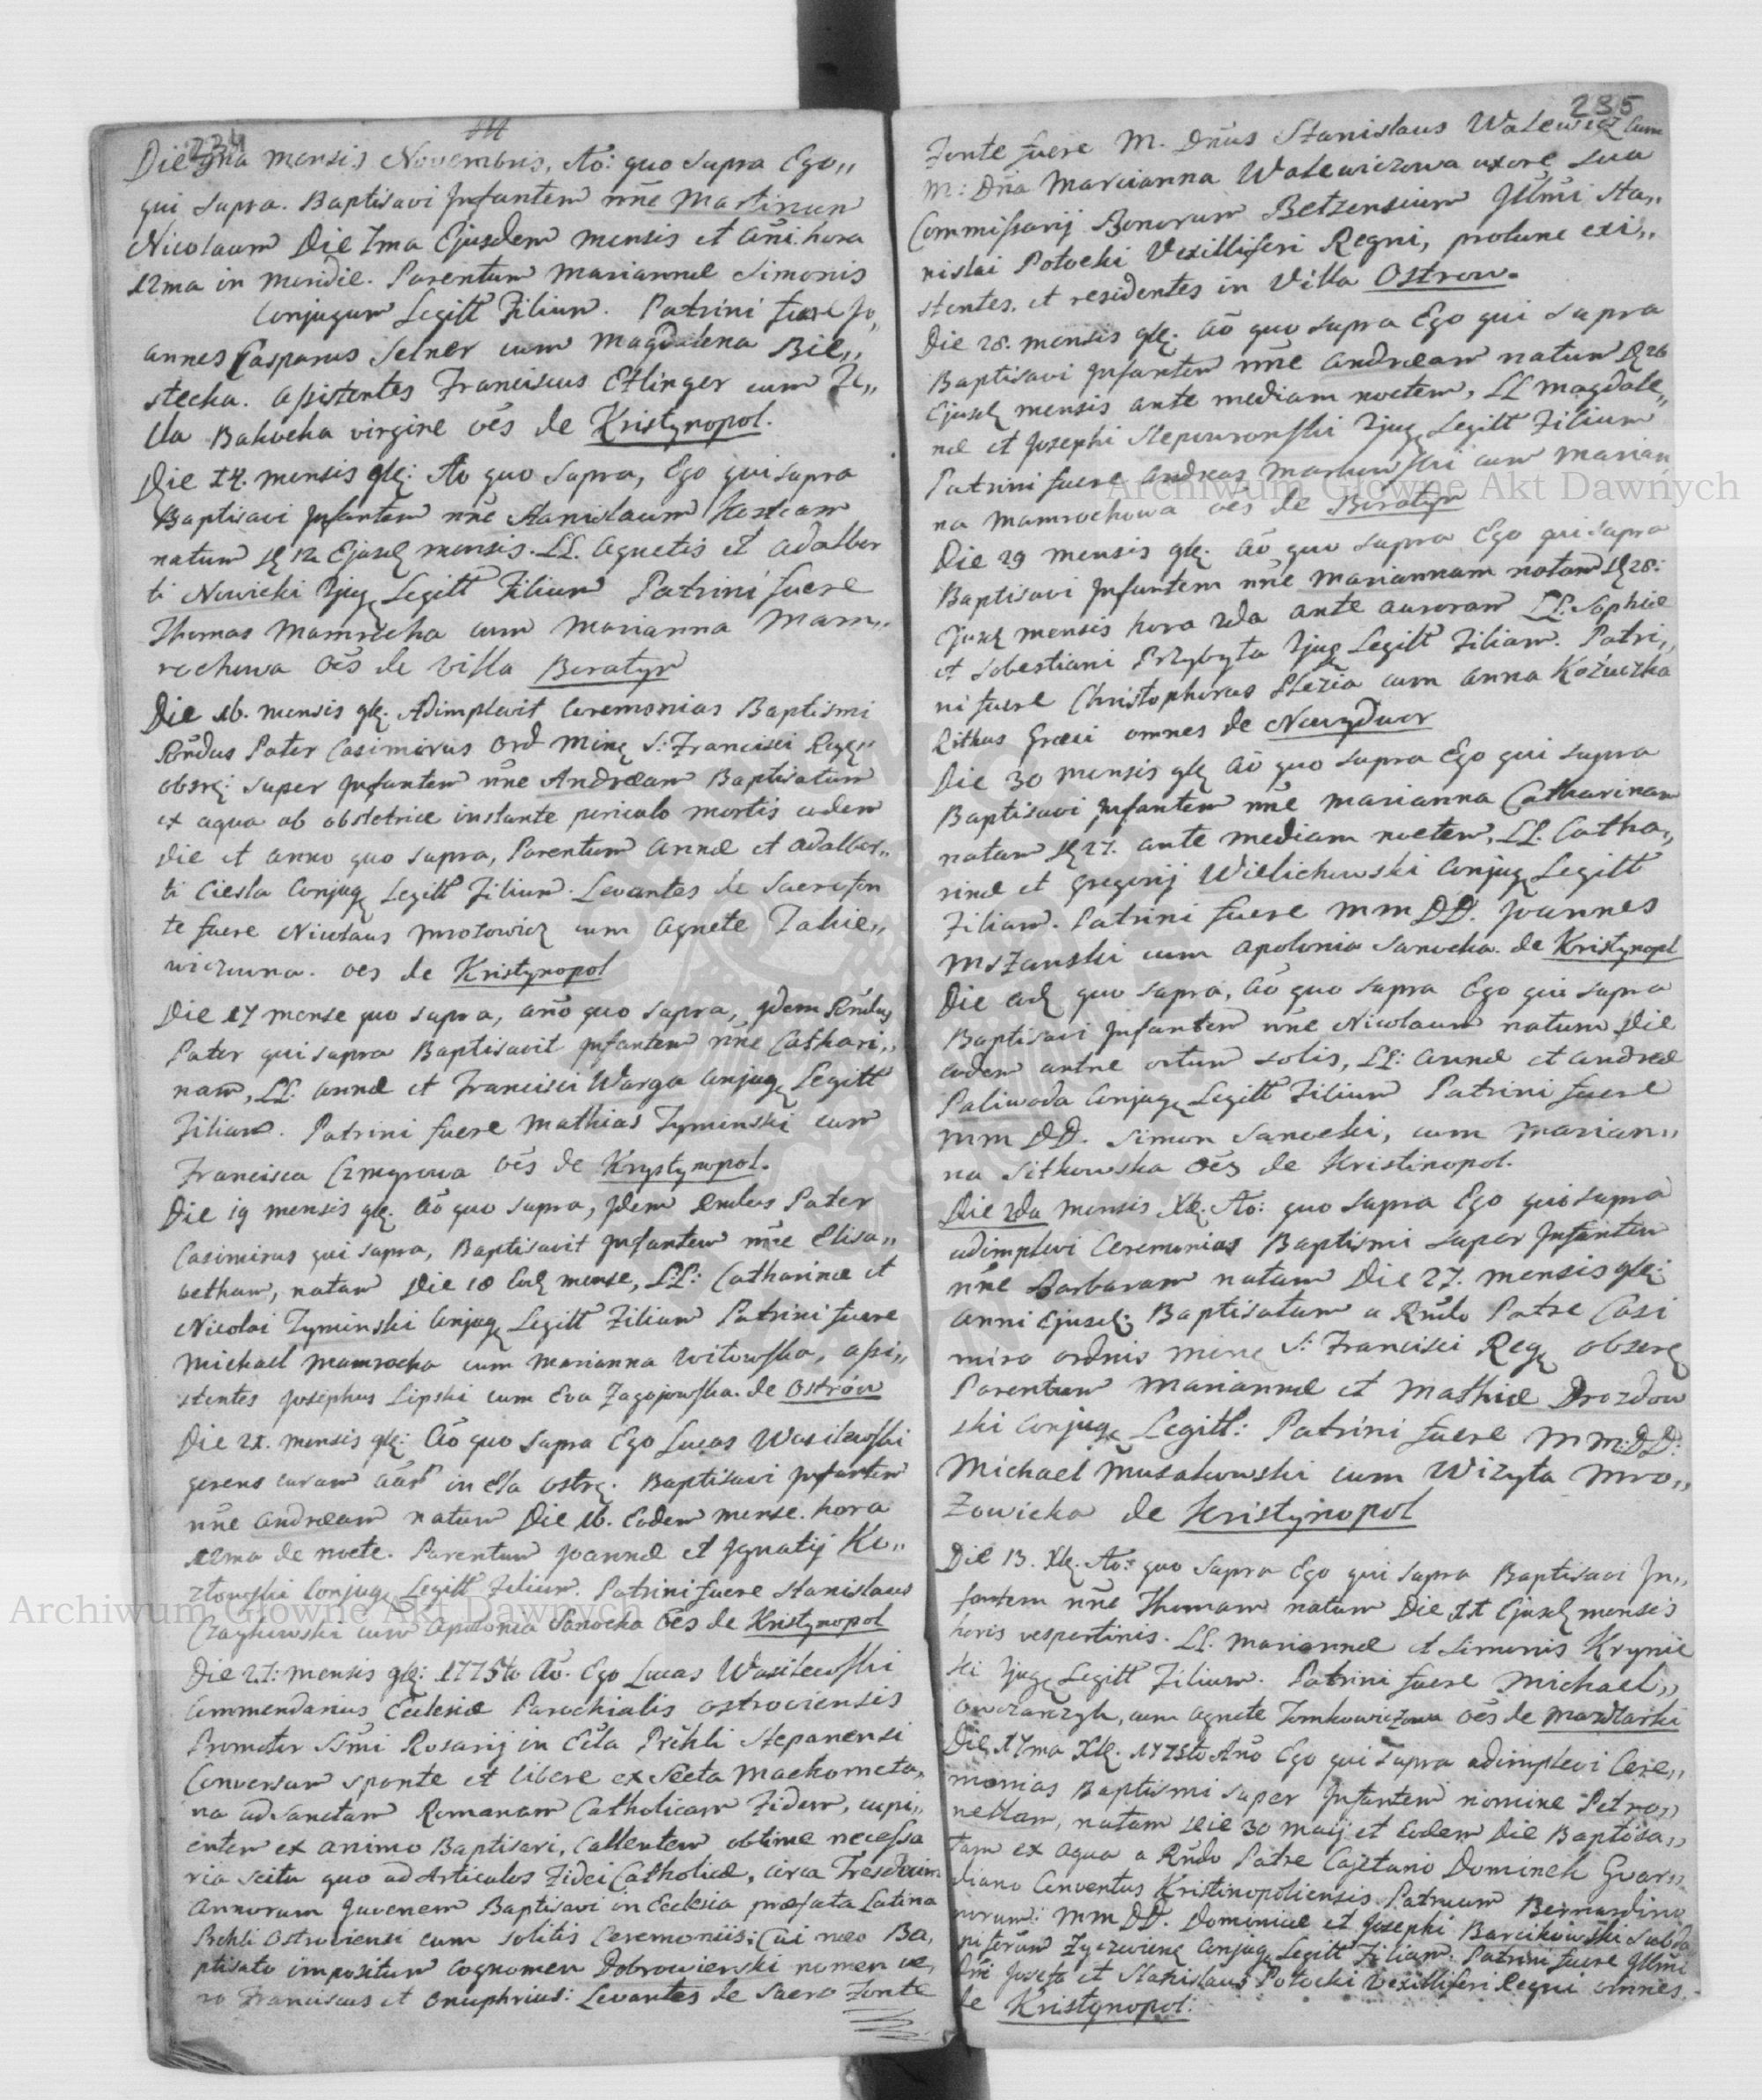 234
Die 9na mensis Novembris, Ao: quo supra Ego,,
qui supra. Baptisavi Infantem nñe Martinum
Nicolaum Die 7ma Ejusdem mensis et añi hora
12ma in meridie. Parentum Mariannæ Simonis
Conjugum Legitt Filium. Patrini fuere Jo,
annes Casparus Selner cum Magdalena Bie,,
stecka. Assistentes Franciscus Etlinger cum Te,,
lla Bakocka virgine oẽs de Kristynopol.
Die 14. mensis 9bẹ: Ao quo supra, Ego qui supra
Baptisavi Infantem nñe Stanislaum Kostcam
natum 12 Ejusd mensis. LL. Agnetis et Adalber
ti Nowicki Legitt Filium Patrini fuere
Thomas Mamrocha cum Marianna Mam,,
rochowa oẽs de villa Boratyn
Die 16. mensis 9bẹ. Adimplevit Ceremonias Baptismi
Rñdus Pater Casimirus Ord Min S: Francisci Reg,,
obsrẹ: super Infantem nñe Andræam Baptisatum
ex aqua ab obstetrice instante periculo mortis eodem
die et anno quo supra, Parentum Annæ et Adalber,,
ti Ciesla Conjug Legitt Filium. Levantes de Sacro fon
te fuere Nicolaus Mrotowicz cum Agnete Fahie,,
wiczowna. oẽs de Kristynopol
Die 17 mense quo supra, año quo supra, Idem Rñdus
Pater qui supra Baptisavit Infantem nñe Cathari,,
nam, LL: Annæ et Francisci Warga Conjug Legitt
Filiam. Patrini fuere Mathias Tyminski cum
Francisca Czmyrowa oẽs de Krystynopol.
Die 19 mensis 9bẹ. aõ quo supra, Idem Rñdus Pater
Casimirus qui supra, Baptisavit Infantem nñe Elisa,,
betham, natam Die 18 Eod mense, LL: Catharinæ et
Nicolai Tyminski Conjug Legitt Filiam Patrini fuere
Michael Mamrocha cum Marianna Witowska, assi,,
stentes Josephus Lipski cum Eva Zagajowska. de Ostrów
Die 21. mensis 9bẹ: aõ quo supra Ego Lucas Wasilewski
gerens curam aãr in Ela Ostrẹ. Baptisavi Infantem
nñe Andræam natum Die 16. Eodem mense. hora
12ma de nocte. Parentum Joannæ et Ignatij Ko,,
złowski Conjug Legitt Filium. Patrini fuere Stanislaus
Czaykowski cum Apolonia Sanocka oẽs de Kristynopol
Die 27: mensis 9bẹ: 1775to Ao. Ego Lucas Wasilewski
Commendarius Ecclesiæ Parochialis Ostroviensis
Promotor SSmi Rosarij in Ecla Prchli Stepanensi
Conversum sponte et libere ex Secta Machometa,
na ad Sanctam Romanam Catholicam Fidem, cupi,,
entem ex animo Baptisari, callentem obtime necessa
ria scitu quo ad Articulos Fidei Catholicæ, circa Tresdecim
Annorum Juvenem Baptisavi in Ecclesia præfata Latina
Prchli Ostroviensi cum solitis Ceremoniis: Cui neo Ba,
ptisato impositum Cognomen Dobrowierski nomen ve,
ro Franciscus et Onuphrius: Levantes de Sacro Fonte
235
Fonte fuere M. Dñus Stanislaus Walewicz cum
M: Dña Marcianna Walewiczowa uxore sua
Commissarij Bonorum Betzensium Illmi Sta,,
nislai Potocki Vexilliferi Regni, protunc exi,,
stentes, et residentes in Villa Ostrow.
Die 28. mensis 9bẹ: aõ quo supra Ego qui supra
Baptisavi Infantem nñe Andræam natum 26
Ejusd mensis ante mediam noctem, LL Magdale,,
næ et Josephi Slepowronski Legitt Filium
Patrini fuere Andreas Markowski cum Marian,
na Mamrochowa oẽs de Boratyn
Die 29 mensis 9bẹ. aõ quo supra Ego qui supra
Baptisavi Infantem nñe Mariannam natam 28:
Ejusd mensis hora 2da ante auroram LL. Sophiæ
et Sebestiani Przybyła Legitt Filiam. Patri,,
ni fuere Christophorus Slezia cum Anna Kożuczka
Rithus Græci omnes de Nowydwor
Die 30 mensis 9bẹ aõ quo supra Ego qui supra
Baptisavi Infantem nñe Marianna Catharinam
natam 27. ante mediam noctem, LL. Catha,,
rinæ et Gregorij Wielichowski Conjug Legitt
Filiam. Patrini fuere MM DD. Joannes
Mszanski cum Apolonia Sanocka. de Kristynopl
Die eod quo supra, aõ quo supra Ego qui supra
Baptisavi Infantem nñe Nicolaum natum Die
eodem antre ortum solis, LL: Annæ et Andreæ
Paliwoda Conjug Legitt Filium Patrini fuere
MM DD. Simon Sanocki, cum Marian,,
na Sitkowska oẽs de Kristinopol.
Die 2da mensis Xbẹ. Ao: quo supra Ego qui supra
adimplevi Ceremonias Baptismi super Infantem
nñe Barbaram natam Die 27. mensis 9bẹ:
anni Ejusd: Baptisatam a Rñdo Patre Casi
miro ordnis min S: Francisci Reg obserẹ
Parentum Mariannæ et Mathiæ Drozdow
ski Conjug Legitt: Patrini fuere MM:DD:
Michael Musalowski cum Wizyta Mro,,
zowicka de Kristynopol
Die 13. Xbẹ. Ao: quo supra Ego qui supra Baptisavi In,,
fantem nñe Thomam natum Die 11 Ejusd mensis
horis vespertinis. LL. Mariannæ et Simonis Krynic
ki Legitt Filium. Patrini fuere Michael,,
Owczarczyk, cum Agnete Tomkowiczowa oẽs de Mazdarki
Die 17ma Xbẹ. 1775to Año Ego qui supra adimplevi Cere,,
monias Baptismi super Infantem nomine Petro,,
nellam, natam Die 30 Maij et Eodem Die Baptisa,,
tam ex aqua a Rñdo Patre Cajetano Dominek Guar,,
diano Conventus Kristinopoliensis Patruum Bernardino
norum: MM DD. Dominicæ et Josephi Barcikowski
Conjug Legitt Filiam. Patrini fuere Illmi
Dñi Josefa et Stanislaus Potocki Vexilliferi Regni omnes
de Kristynopol.
Archiwum Główne Akt Dawnych
Archiwum Główne Akt Dawnych